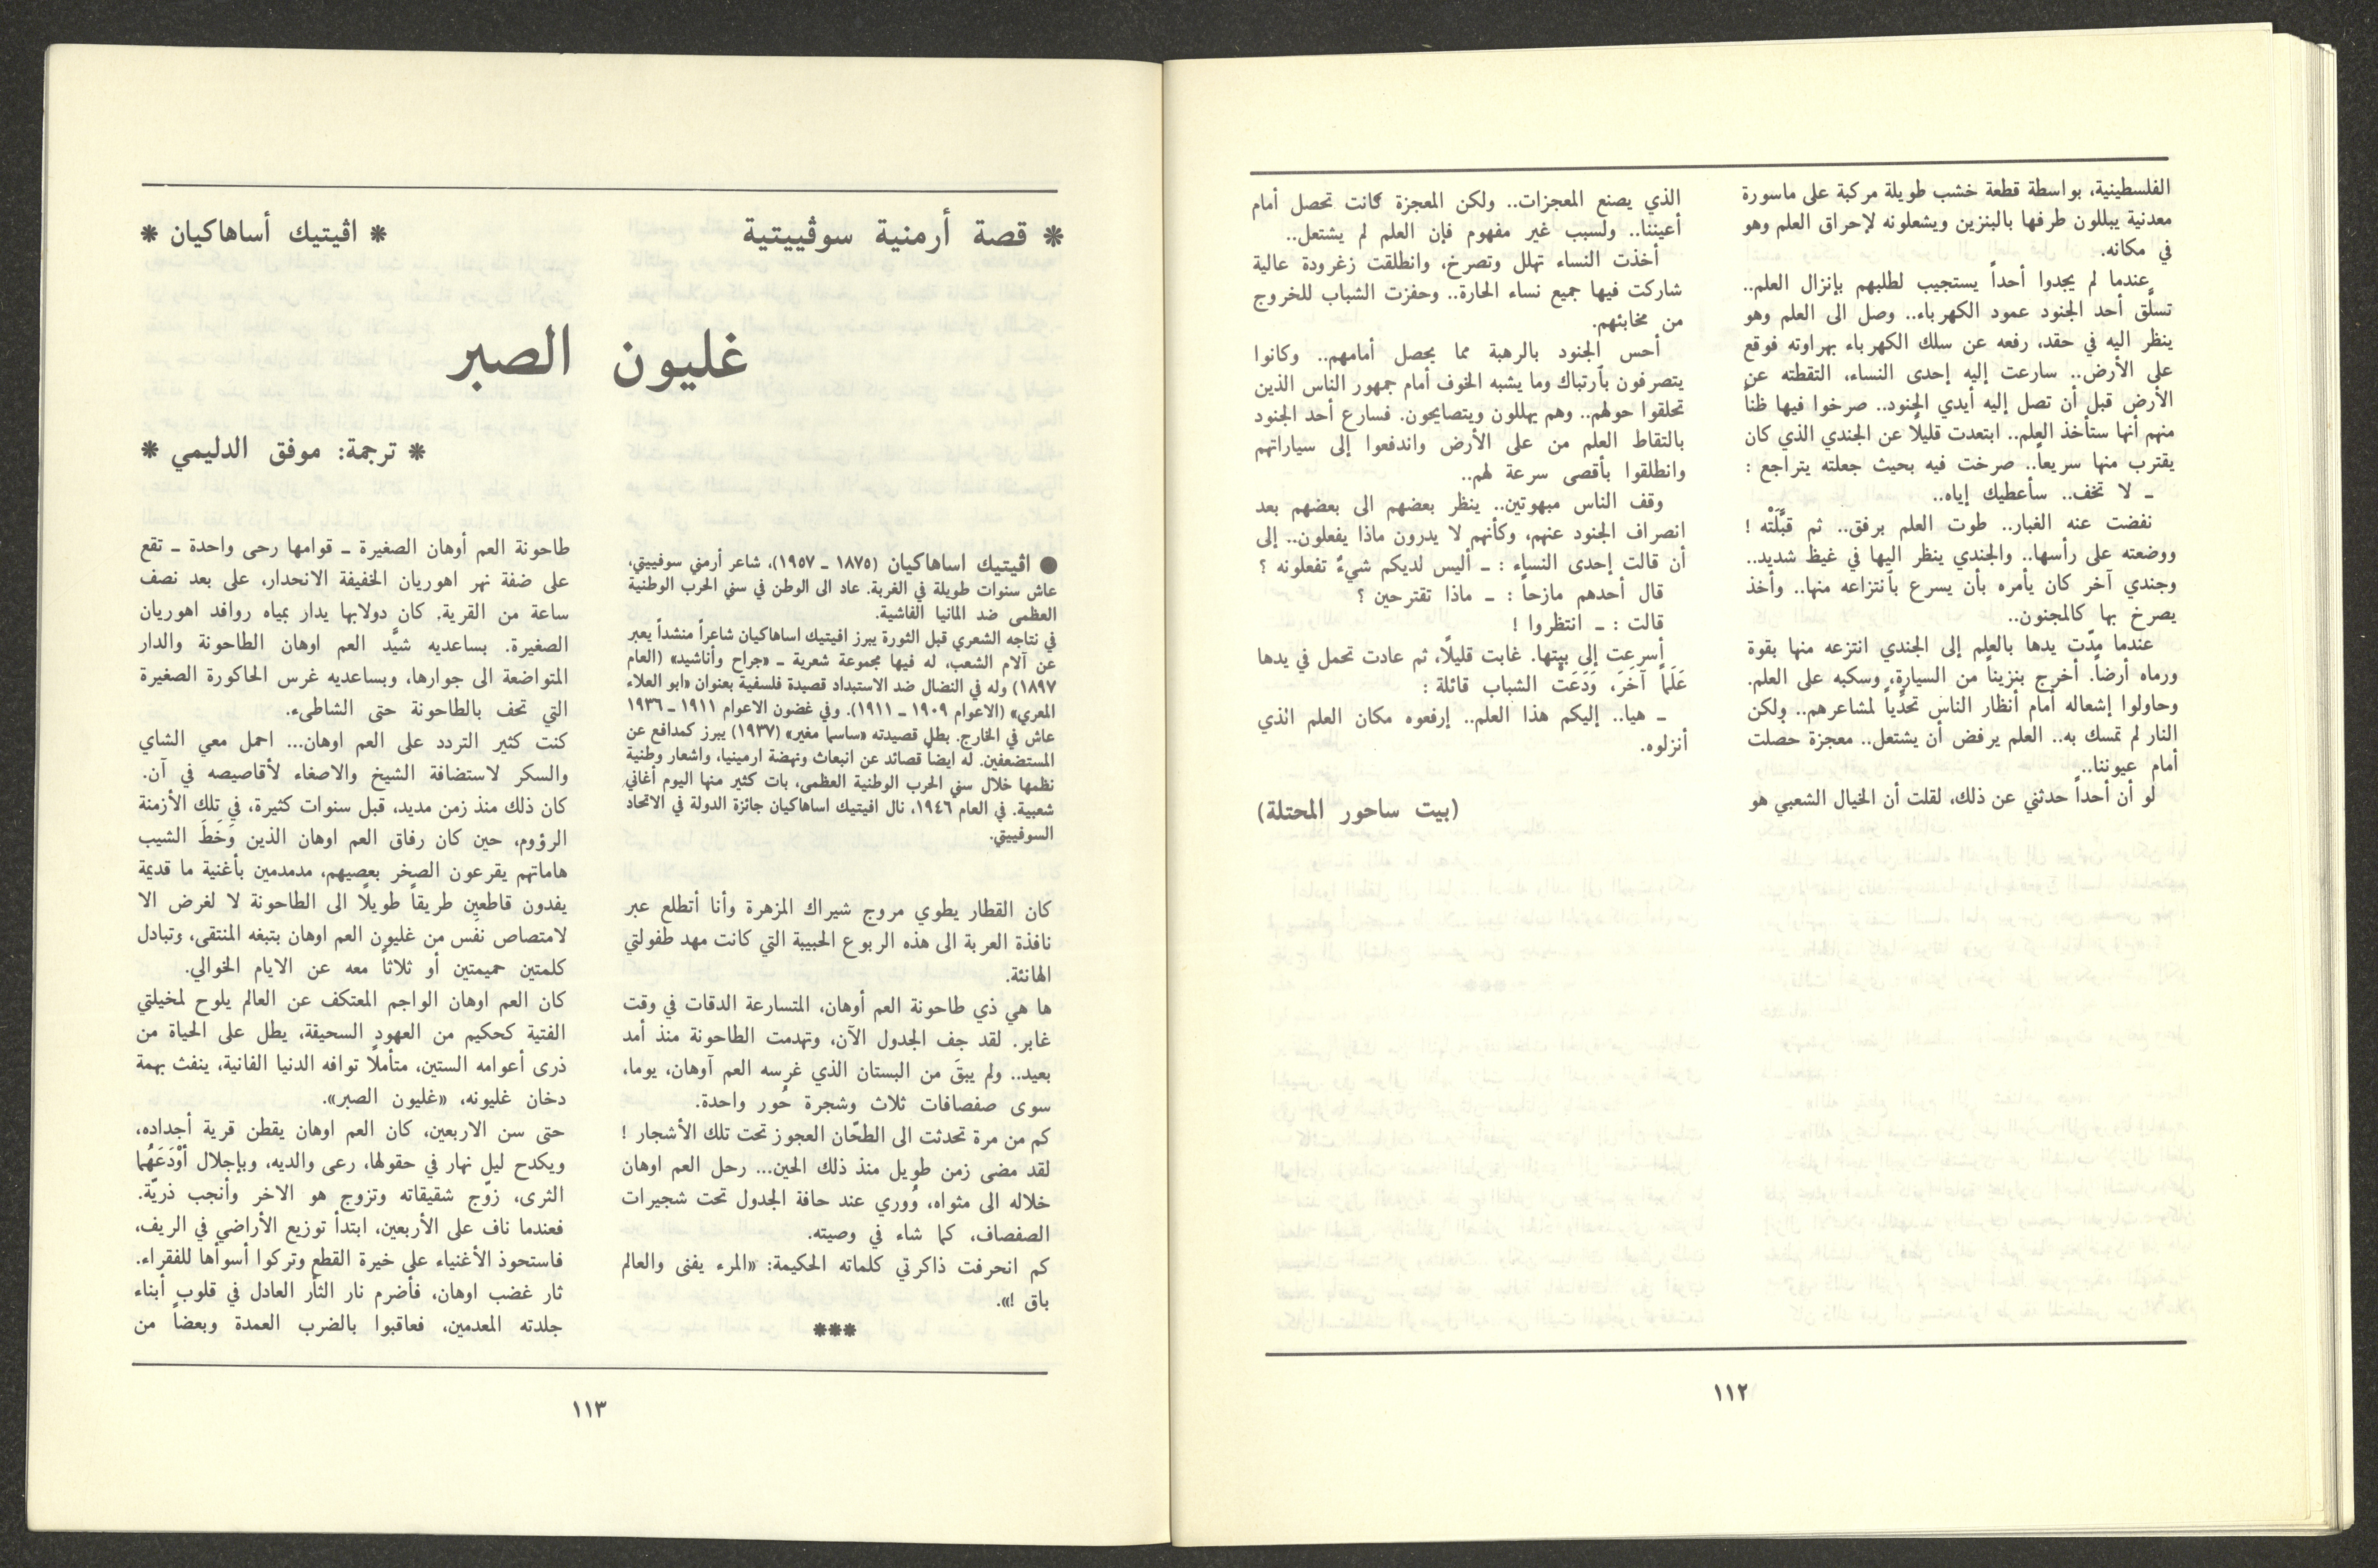 الفلسطينية، بواسطة قطعة خشب طويلة مركبة على ماسورة
معدنية يبللون طرفها بالبنزين ويشعلونه لإحراق العلم وهو
في مكانه.
عندما لم يجدوا أحداً يستجيب لطلبهم بإنزال العلم..
تسلَّق أحد الجنود عمود الكهرباء.. وصل الى العلم وهو
ينظر اليه في حقد، رفعه عن سلك الكهرباء بهراوته فوقع
على الأرض.. سارعت إليه إحدى النساء، التقطته عن
الأرض قبل أن تصل إليه أيدي الجنود.. صرخوا فيها ظناً
منهم أنها ستأخذ العلم.. ابتعدت قليلًا عن الجندي الذي كان
يقترب منها سريعاً.. صرخت فيه بحيث جعلته يتراجع :
ـ لا تخف.. سأعطيك إياه..
نفضت عنه الغبار.. طوت العلم برفق.. ثم قبَّلَتْه !
ووضعته على رأسها.. والجندي ينظر اليها في غيظ شديد..
وجندي آخر كان يأمره بأن يسرع بآنتزاعه منها.. وأخذ
يصرخ بها كالمجنون..
عندما مدّت يدها بالعلم إلى الجندي انتزعه منها بقوة
ورماه أرضاً. أخرج بنزيناً من السيارة، وسكبه على العلم.
وحاولوا إشعاله أمام أنظار الناس تحدّياً لمشاعرهم.. ولكن
النار لم تمسك به.. العلم يرفض أن يشتعل.. معجزة حصلت
أمام عيوننا..
لو أن أحداً حدثني عن ذلك، لقلت أن الخيال الشعبي هو
الذي يصنع المعجزات.. ولكن المعجزة كانت تحصل أمام
أعيننا.. ولسبب غير مفهوم فإن العلم لم يشتعل..
أخذت النساء تهلل وتصرخ، وانطلقت زغرودة عالية
شاركت فيها جميع نساء الحارة.. وحفزت الشباب للخروج
من مخابئهم.
أحس الجنود بالرهبة مما يحصل أمامهم.. وكانوا
يتصرفون بآرتباك وما يشبه الخوف أمام جمهور الناس الذين
تحلقوا حولهم.. وهم يهللون ويتصايحون. فسارع أحد الجنود
بالتقاط العلم من على الأرض واندفعوا إلى سياراتهم
وانطلقوا بأقصى سرعة لهم..
وقف الناس مبهوتين.. ينظر بعضهم الى بعضهم بعد
انصراف الجنود عنهم، وكأنهم لا يدرون ماذا يفعلون.. إلى
أن قالت إحدى النساء : ـ أليس لديكم شيءٌ تفعلونه ؟
قال أحدهم مازحاً : ـ ماذا تقترحين ؟
قالت : ـ انتظروا !
أسرعت إلى بيتها. غابت قليلًا، ثم عادت تحمل في يدها
عَلَماً آخَرَ، وَدَعَتْ الشباب قائلة :
ـ هيا.. إليكم هذا العلم.. إرفعوه مكان العلم الذي
أنزلوه.
(بيت ساحور المحتلة)
١١٢
* قصة أرمنية سوڤييتية
* اڤيتيك أساهاكيان *
غليون الصبر
* ترجمة: موفق الدليمي *
● اڤيتيك اساهاكيان (١٨٧٥ ـ ١٩٥٧)، شاعر أرمني سوفييتي،
عاش سنوات طويلة في الغربة. عاد الى الوطن في سني الحرب الوطنية
العظمى ضد المانيا الفاشية.
في نتاجه الشعري قبل الثورة يبرز افيتيك اساهاكيان شاعراً منشداً يعبر
عن آلام الشعب، له فيها مجموعة شعرية ـ «جراح وأناشيد» (العام
١٨٩٧) وله في النضال ضد الاستبداد قصيدة فلسفية بعنوان «ابو العلاء
المعري» (الاعوام ١٩٠٩ ـ ١٩١١). وفي غضون الاعوام ١٩١١ ـ ١٩٣٦
عاش في الخارج. بطل قصيدته «ساسما مغير» (١٩٣٧) يبرز كمدافع عن
المستضعفين. له ايضاً قصائد عن انبعاث ونهضة ارمينيا، واشعار وطنية
نظمها خلال سني الحرب الوطنية العظمى، بات كثير منها اليوم أغاني
شعبية. في العام ١٩٤٦، نال افيتيك اساهاكيان جائزة الدولة في الاتحاد
السوفييتي.
كان القطار يطوي مروج شيراك المزهرة وأنا أتطلع عبر
نافذة العربة الى هذه الربوع الحبيبة التي كانت مهد طفولتي
الهانئة.
ها هي ذي طاحونة العم أوهان، المتسارعة الدقات في وقت
غابر. لقد جف الجدول الآن، وتهدمت الطاحونة منذ أمد
بعيد.. ولم يبقَ من البستان الذي غرسه العم آوهان، يوما،
سوى صفصافات ثلاث وشجرة حُور واحدة.
كم من مرة تحدثت الى الطحّان العجوز تحت تلك الأشجار !
لقد مضى زمن طويل منذ ذلك الحين... رحل العم اوهان
خلاله الى مثواه، وُوري عند حافة الجدول تحت شجيرات
الصفصاف، كما شاء في وصيته.
كم انحرفت ذاكرتي كلماته الحكيمة: «المرء يفنى والعالم
باق !».
***
طاحونة العم أوهان الصغيرة ـ قوامها رحى واحدة ـ تقع
على ضفة نهر اهوريان الخفيفة الانحدار، على بعد نصف
ساعة من القرية. كان دولابها يدار بمياه روافد اهوريان
الصغيرة. بساعديه شيَّد العم اوهان الطاحونة والدار
المتواضعة الى جوارها، وبساعديه غرس الحاكورة الصغيرة
التي تحف بالطاحونة حتى الشاطىء.
كنت كثير التردد على العم اوهان... احمل معي الشاي
والسكر لاستضافة الشيخ والاصغاء لأقاصيصه في آن.
كان ذلك منذ زمن مديد، قبل سنوات كثيرة، في تلك الأزمنة
الرؤوم، حين كان رفاق العم اوهان الذين وَخَطَ الشيب
هاماتهم يقرعون الصخر بعصيهم، مدمدمين بأغنية ما قديمة
يفدون قاطعين طريقاً طويلًا الى الطاحونة لا لغرض الا
لامتصاص نفَس من غليون العم اوهان بتبغه المنتقى، وتبادل
كلمتين حميمتين أو ثلاثاً معه عن الايام الخوالي.
كان العم اوهان الواجم المعتكف عن العالم يلوح لمخيلتي
الفتية كحكيم من العهود السحيقة، يطل على الحياة من
ذرى أعوامه الستين، متأملًا توافه الدنيا الفانية، ينفث بهمة
دخان غليونه، «غليون الصبر».
حتى سن الاربعين، كان العم اوهان يقطن قرية أجداده،
ويكدح ليل نهار في حقولها، رعى والديه، وبإجلال أَوْدَعَهُما
الثرى، زوّج شقيقاته وتزوج هو الاخر وأنجب ذريّة.
فعندما ناف على الأربعين، ابتدأ توزيع الأراضي في الريف،
فاستحوذ الأغنياء على خيرة القطع وتركوا أسوأها للفقراء.
ثار غضب اوهان، فأضرم نار الثأر العادل في قلوب أبناء
جلدته المعدمين، فعاقبوا بالضرب العمدة وبعضاً من
١١٣